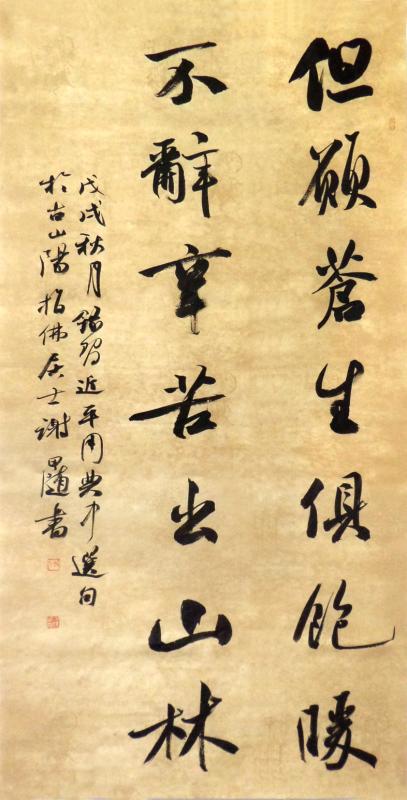 但願蒼生俱飽暖
不辭辛苦出山林
戊戌秋月錄習近平用典中選句
於古山陽指佛居士謝隨書